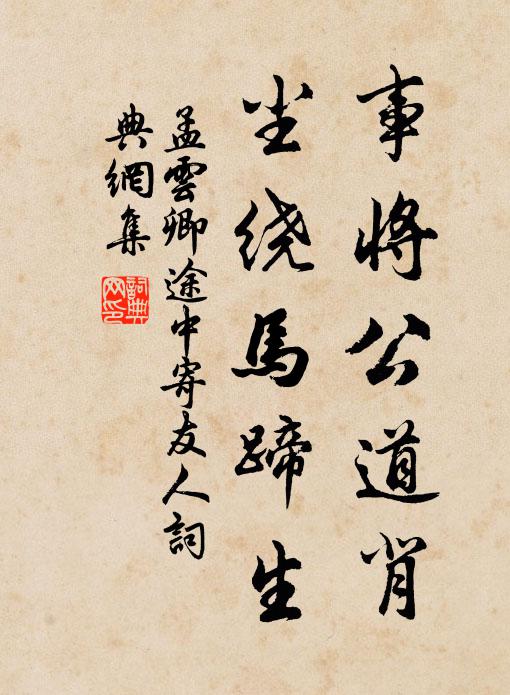 事将公道背
尘绕馬蹄生
孟雲卿途中寄友人詞
典網集
詞典
网印